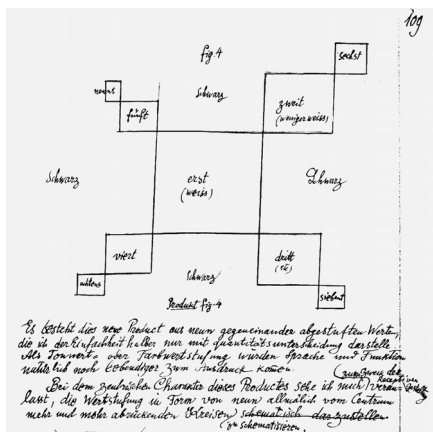 109
fig. 4
sechst
neunt
fünft
Schwarz
zweit
(weniger weiss)
Schwarz
erst
(weiss)
Schwarz
viert
dritt
achtens
Schwarz
siebent
Product fig. 4
Es besteht dies neue Product aus neun gegeneinander abgestuften Werten,
die ich der Einfachheit halber nur mit quantitätsunterscheidung darstelle.
Als Tonwert, oder Farbwertstufung würden Sprache und Funktion
natürlich noch lebendiger zum Ausdruck komen.
(zum Zweck der
Bei dem zentrischen Charakter dieses Productes sehe ich mich veran-
lasst, die Wertstufung in Form von neun allmälich vom Centrum
mehr und mehr abrückenden Kreisen schematisch darzustellen
(zu schematisieren.